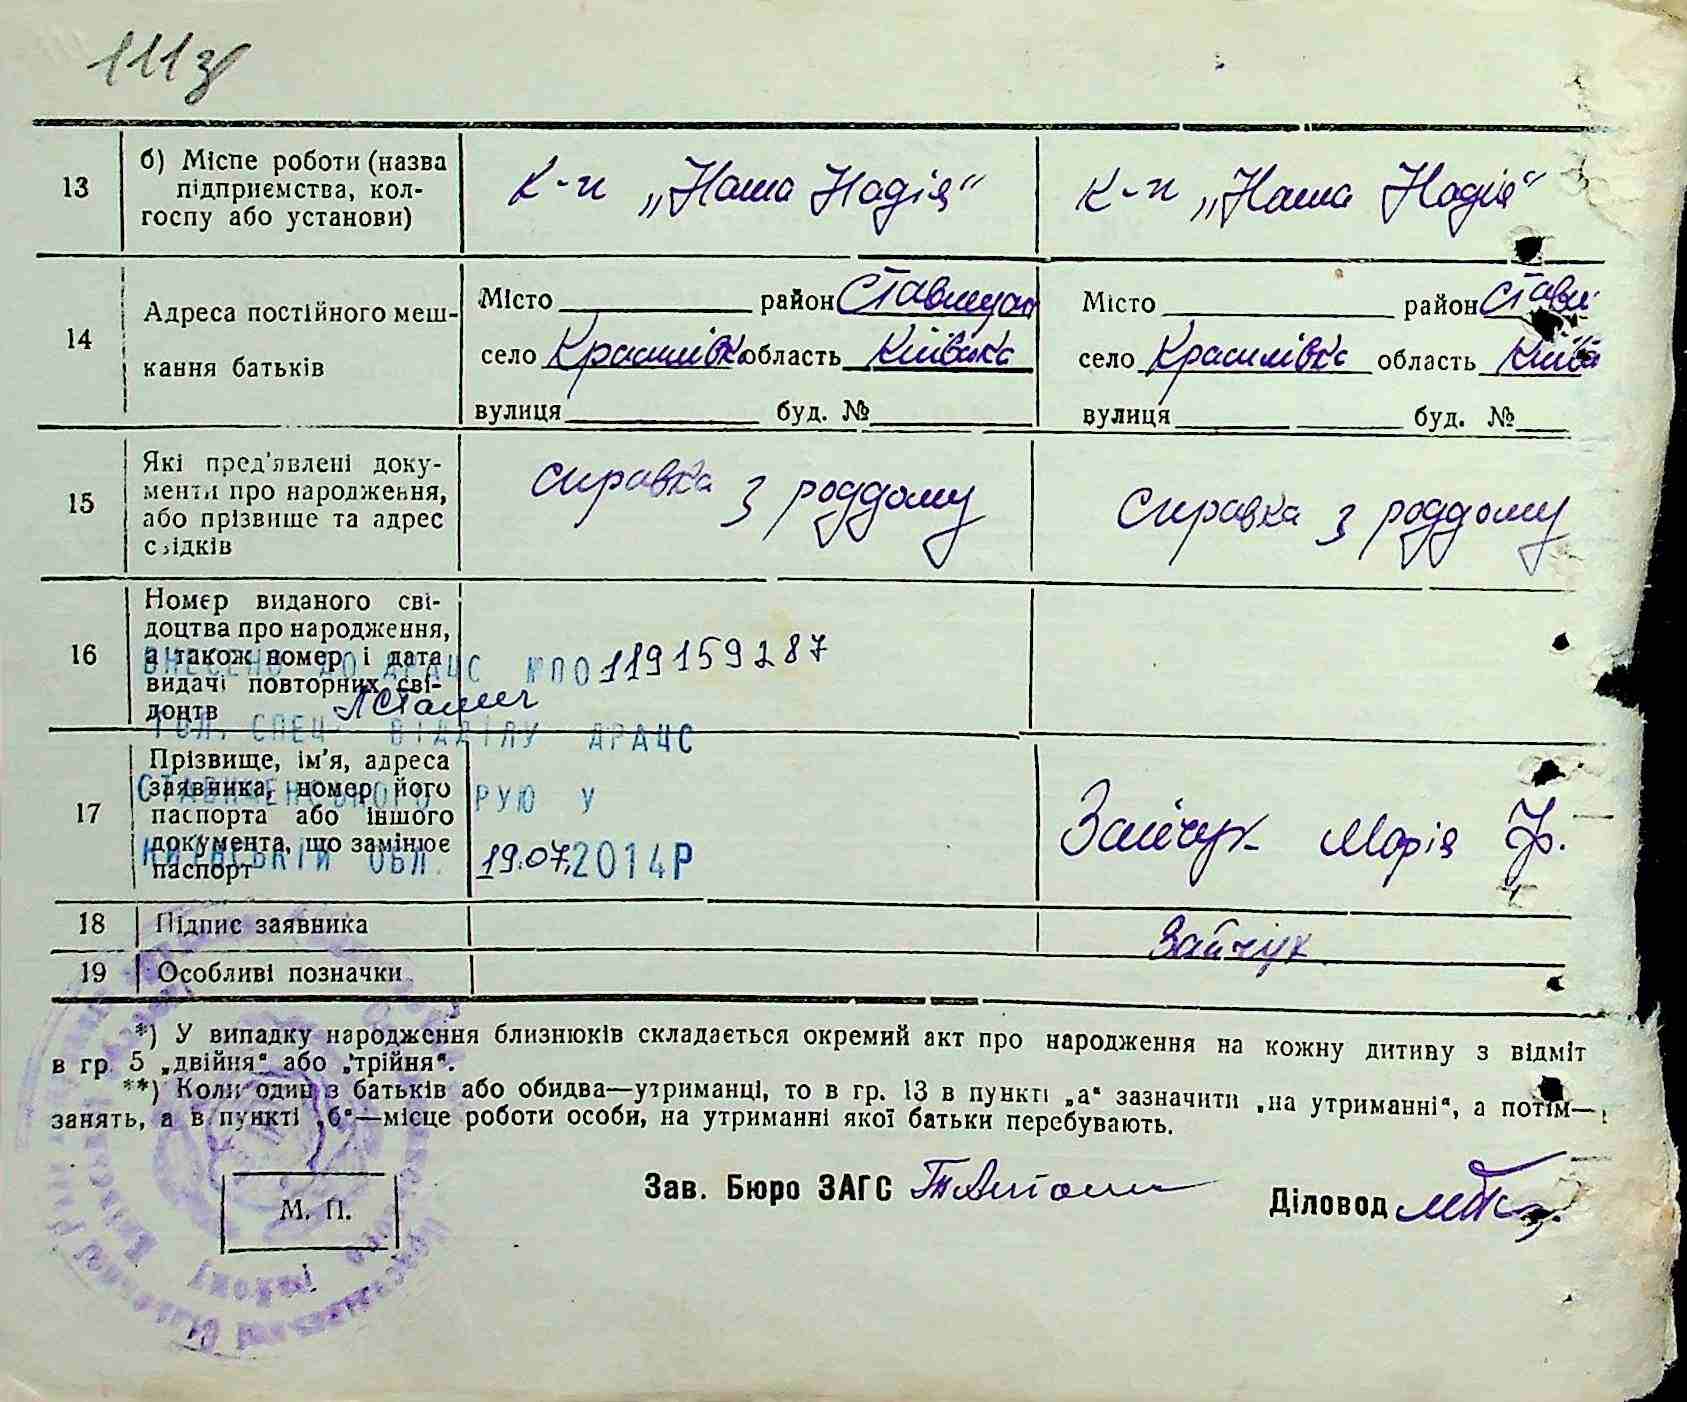 111з
13
б) Місце роботи (назва підприємства, колгоспу або установи)
к-п „Наша Надія“
к-п „Наша Надія“
14
Адреса постійного мешкання батьків
Місто район Ставищан
село Красилівка область Київська
вулиця буд. №
Місто район Стави
село Красилівка область Київ
вулиця буд. №
15
Які пред'явлені документи про народження, або прізвище та адрес свідків
справка з роддому
справка з роддому
16
Номер виданого свідоцтва про народження, а також номер і дата видачі повторних свідоцтв
ВНЕСЕНО ДО ДРАЦС №ПО 119159287
ГОЛ. СПЕЦ ВІДДІЛУ ДРАЦС
СТАВИЩЕНСЬКОГО РУЮ У
КИЇВСЬКІЙ ОБЛ. 19.07.2014Р
17
Прізвище, ім'я, адреса заявника, номер його паспорта або іншого документа, що замінює паспорт
Зайчук Марія Ф.
18
Підпис заявника
Зайчук
19
Особливі позначки
*) У випадку народження близнюків складається окремий акт про народження на кожну дитину з відміт
в гр. 5 „двійня“ або „трійня“.
**) Коли один з батьків або обидва—утриманці, то в гр. 13 в пункті „а“ зазначити „на утриманні“, а потім—
занять, а в пункті „б“—місце роботи особи, на утриманні якої батьки перебувають.
М. П.
Зав. Бюро ЗАГС
Діловод